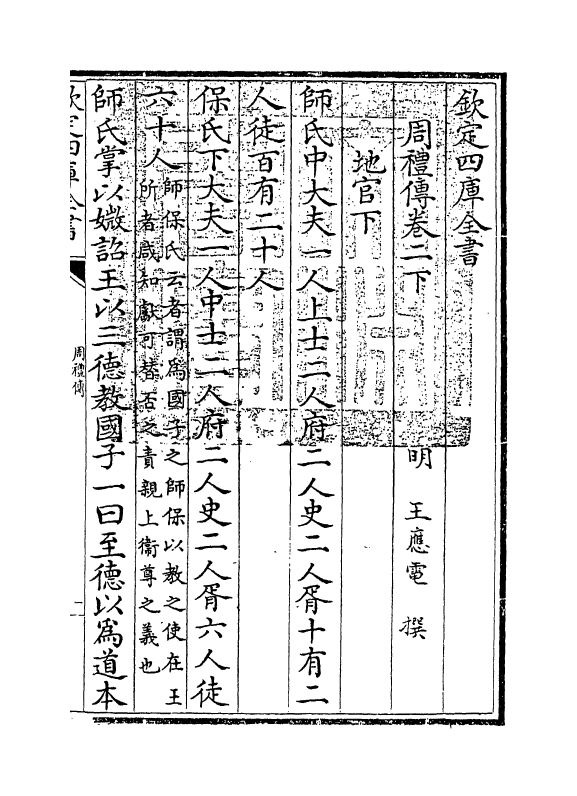 欽定四庫全書
周禮傳卷二下
明 王應電 撰
地官下
師氏中大夫一人上士二人府二人史二人胥十有二
人徒百有二十人
保氏下大夫一人中士二人府二人史二人胥六人徒
六十人師保氏云者謂為國子之師保以教之使在王
所者咸知獻可替否之責親上衞尊之義也
師氏掌以媺詔王以三德教國子一曰至德以為道本
欽定四庫全書
周禮傳